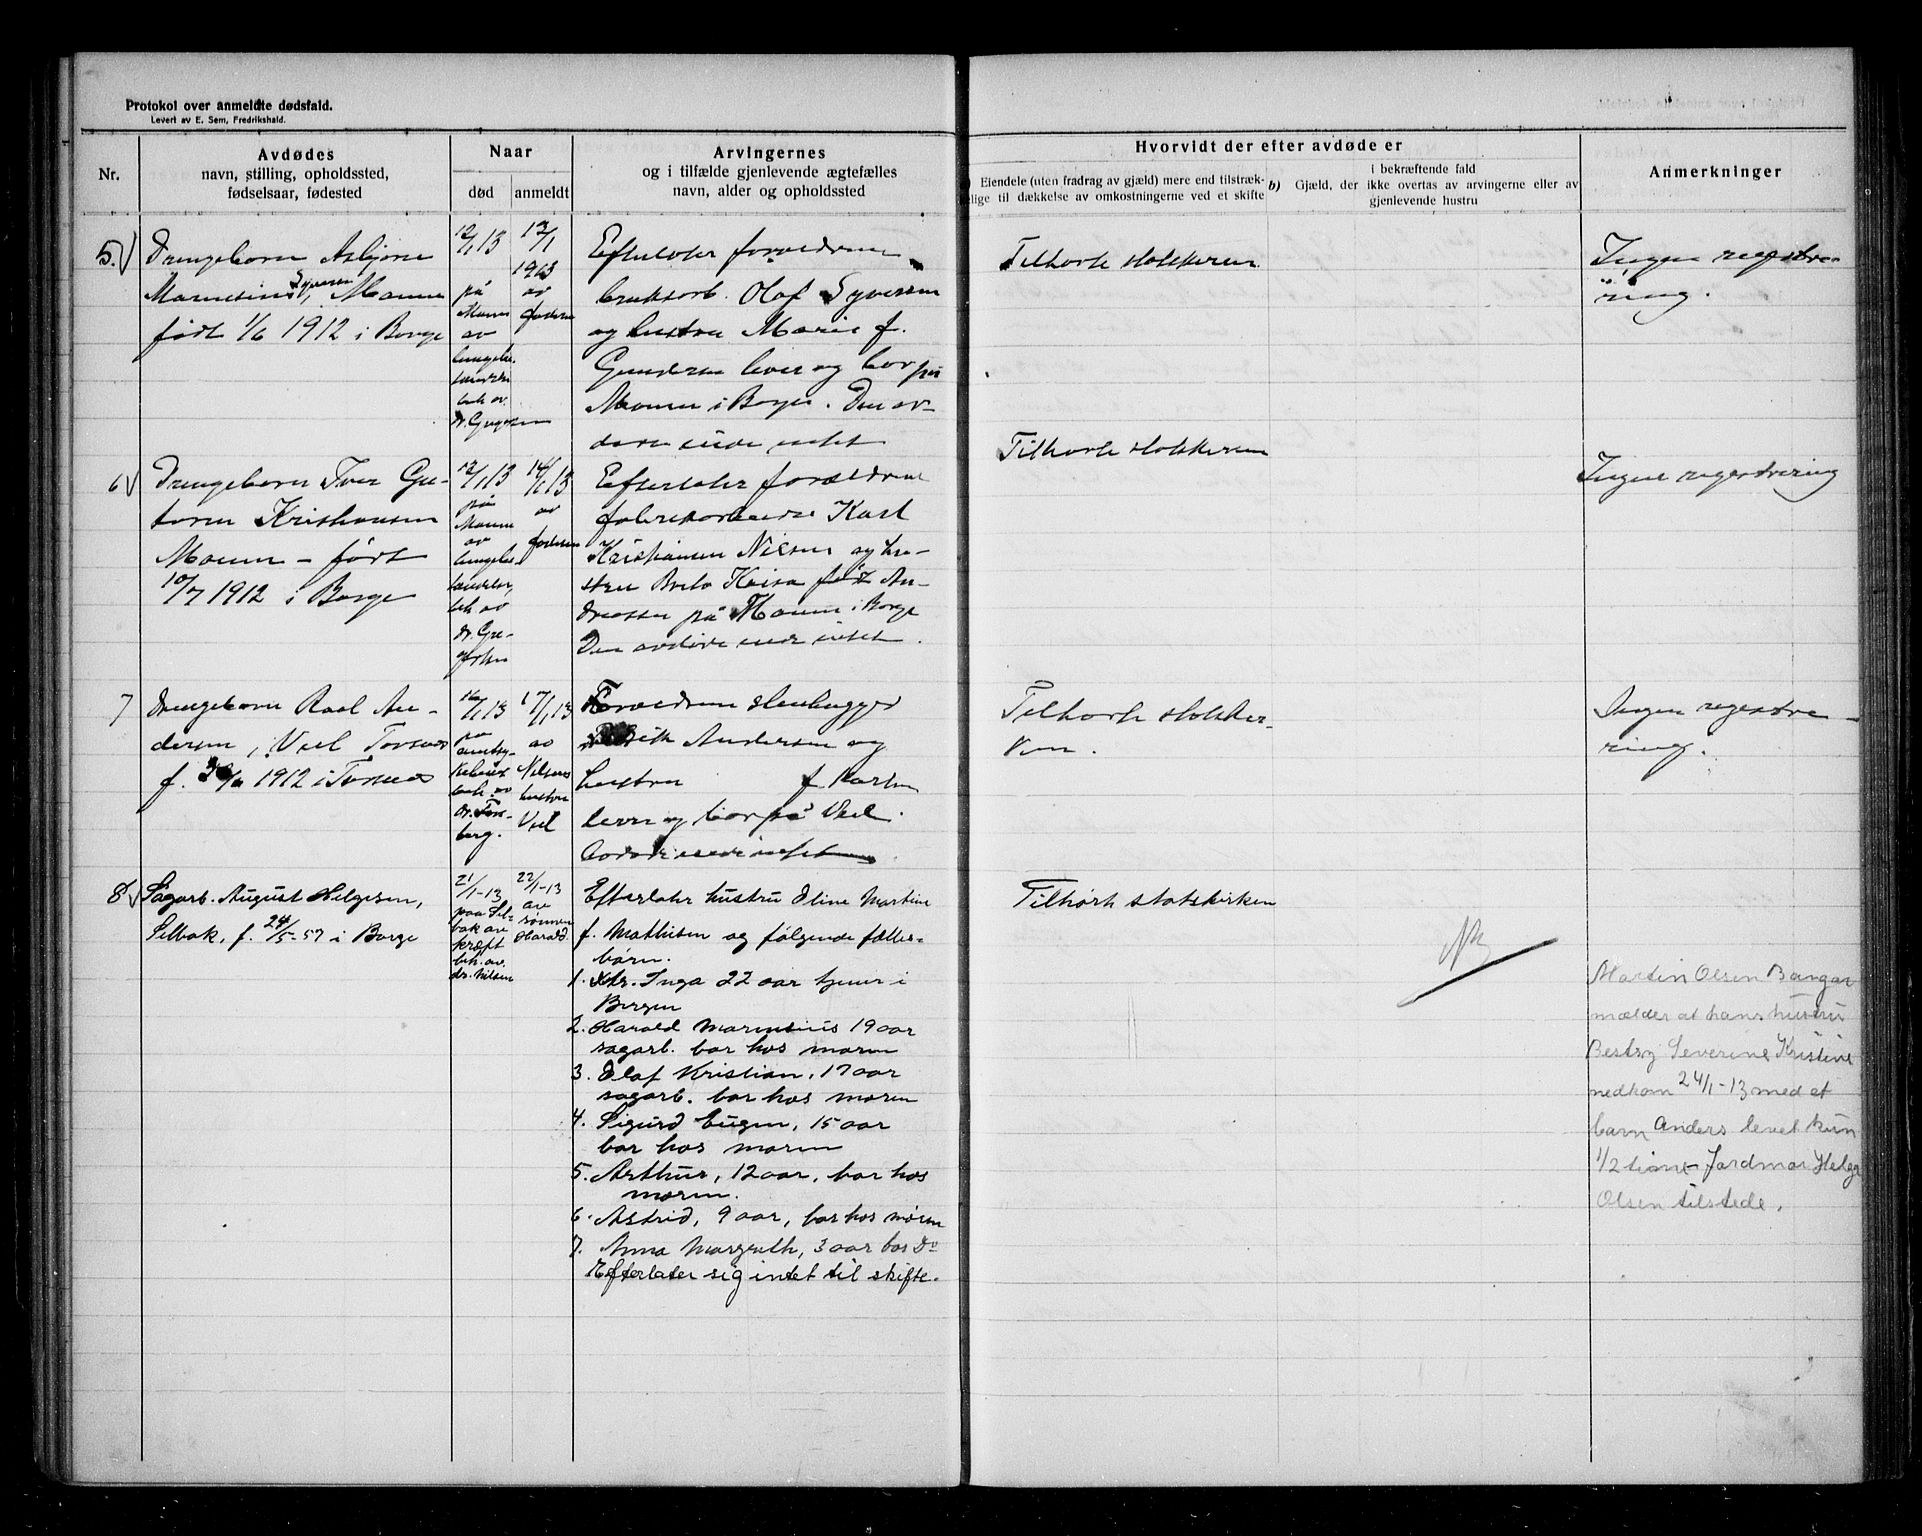 Protokol over anmeldte dødsfald.
Levert av E. Sem, Fredrikshald.
Nr.
Avdødes
navn, stilling, opholdssted,
fødselsaar, fødested
Naar
død
anmeldt
Arvingernes
og i tilfælde gjenlevende ægtefælles
navn, alder og opholdssted
Hvorvidt der efter avdøde er
Eiendele (uten fradrag av gjæld) mere end tilstræk-
elige til dækkelse av omkostningerne ved et skifte
b) Gjæld, der
i bekræftende fald
ikke overtas av arvingerne eller av
gjenlevende hustru
Anmerkninger
5.
Drengebarn Asbjørn
Marensius Syversen, Moum
født 1/6 1912 i Borge
12/1 13
på
Moum
av
lungebe-
tændelse
beh. av
dr. Gregersen
1913
av
faderen
Efterlater forældrene
bruksarb. Olaf Syversen
og hustru Marie f.
Gundersen lever og bor på
Moum i Borge. Den av-
døde eiide intet
Tilhørte statskirken
Ingen registre-
ring.
6
Drengebarn Iver Gu-
torm Kristiansen
Moum - født
10/7 1912 i Borge
12/1 13
på
Moum
av
lungebe-
tændelse,
beh. av
dr. Gre-
gersen
14/1 13
av
faderen
Efterlater forældrene
fabrikarbeider Karl
Kristiansen Nilsen og hu-
stru født An-
dreassen på Moum i Borge
Den avdøde eiide intet.
Tilhørte statskirken
Ingen registrering
7
Drengebarn Roal An-
dersen, Viel Torsnes
f. 1912 i Torsnes
16/1 13
på
beh. av
dr. Fos-
berg.
17/1 13
av
Nilsens
hustru
Viel
Forældrene stenhugger
Andersen og
hustru f. Karlsen
lever og bor på Viel.
Avdøde eiide intet
Tilhørte statskir-
ken.
Ingen registre-
ring.
8
Sagarb. August Helgesen,
Selbak, f. 24/5-57 i Borge
21/1-13
paa Sel-
bak av
kræft
beh. av.
dr. Nilsen
22/1-13
av
sønnen
Harald.
Efterlater hustru Oline Martine
f. Mathisen og følgende fælles-
børn.
1. Inga 22 aar tjener i
Bergen
2. Harald Marensius 19 aar
sagarb. bor hos moren
3. Olaf Kristian, 17 aar
sagarb. bor hos moren
4. Sigurd Eugen, 15 aar
bor hos moren
5. Arthur, 12 aar, bor hos
moren.
6. Astrid, 9 aar, bor hos moren
7. Anna Margreth, 3 aar bor Do
Efterlater sig intet til skifte.
Tilhørte statskirken
Martin Olsen Bangar
mælder at hans hustru
Severine Kristine
nedkom 24/1-13 med et
barn Anders levet kun
1/2 time Jordmor Helga
Olsen tilstede.